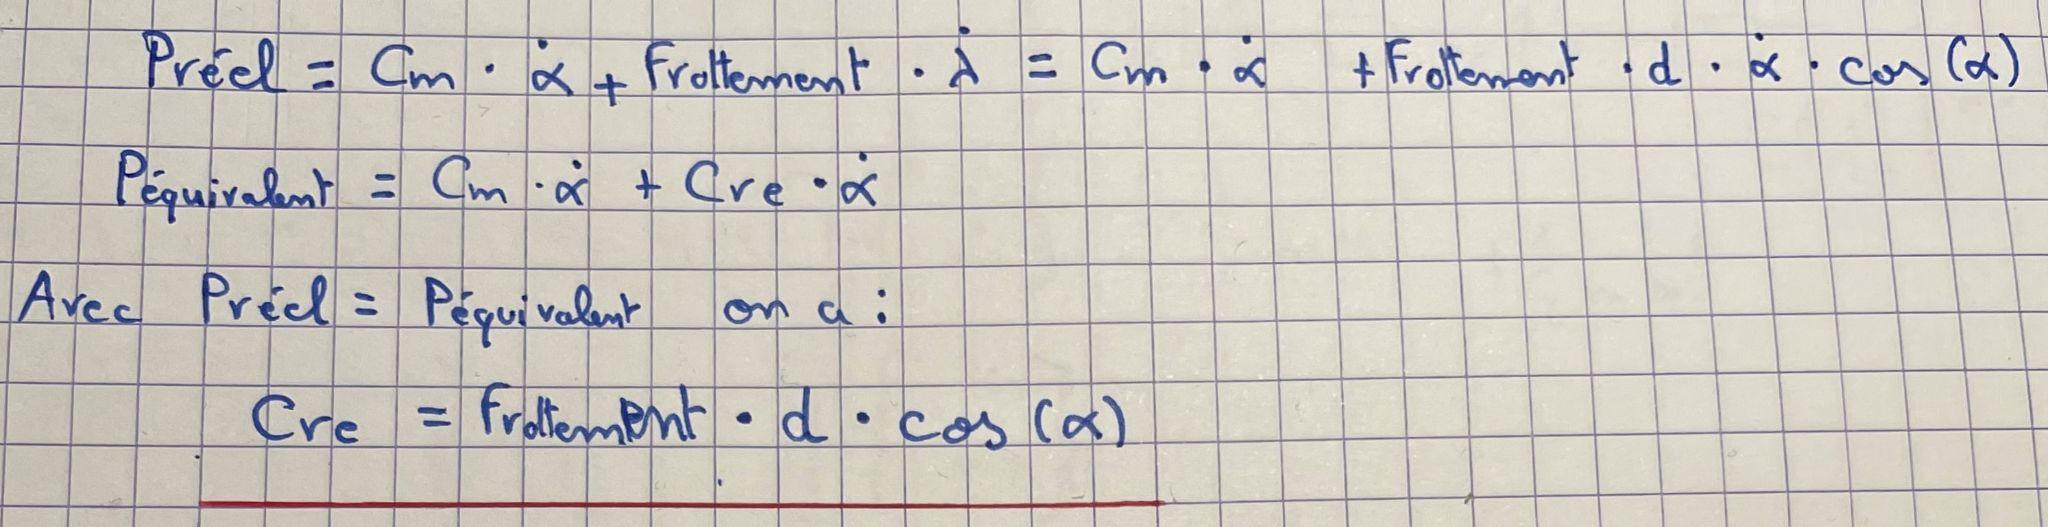 Préel = Cm · α̇ + Frottement · λ̇ = Cm · α̇ + Frottement · d · α̇ · cos (α)
Péquivalent = Cm · α̇ + Cre · α̇
Avec Préel = Péquivalent on a :
Cre = Frottement · d · cos (α)